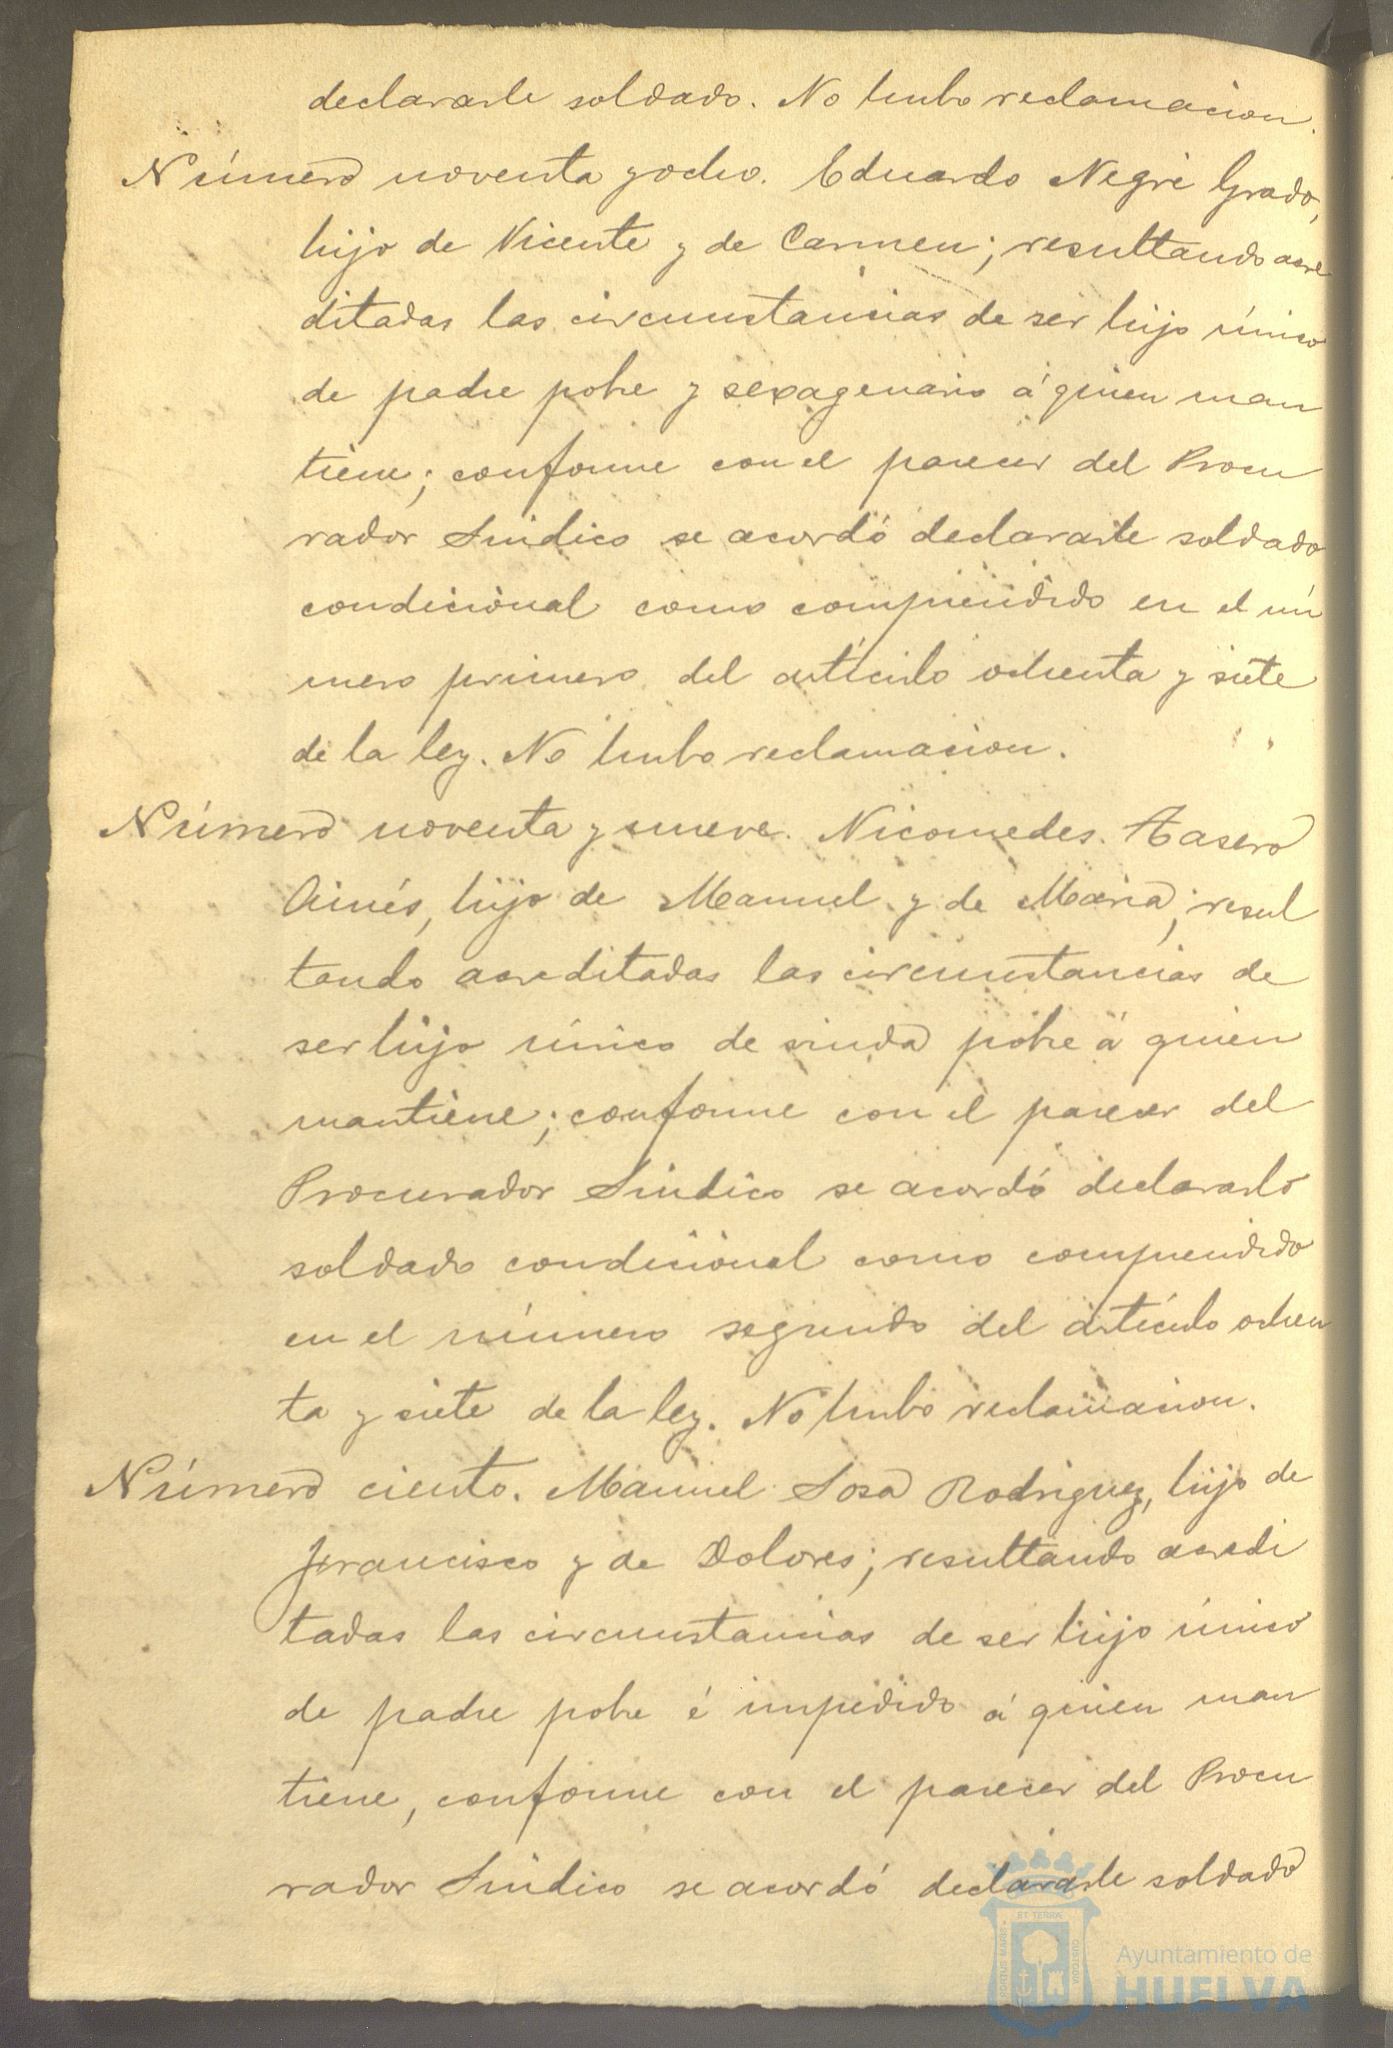 declararle soldado. No hubo reclamacion.
Número noventa y ocho. Eduardo Negre Grado,
hijo de Vicente y de Carmen; resultando acre
ditadas las circunstancias de ser hijo único
de padre pobre y sexagenario á quien man
tiene; conforme con el parecer del Procu
rador Sindico se acordó declararle soldado
condicional como comprendido en el nú
mero primero del artículo ochenta y siete
de la ley. No hubo reclamacion.
Número noventa y nueve. Nicomedes Tasero
hijo de Manuel y de Maria; resul
tando acreditadas las circunstancias de
ser hijo único de viuda pobre á quien
mantiene; conforme con el parecer del
Procurador Sindico se acordó declararlo
soldado condicional como comprendido
en el número segundo del artículo ochen
ta y siete de la ley. No hubo reclamacion.
Número ciento. Manuel Sosa Rodriguez, hijo de
Francisco y de Dolores; resultando acredi
tadas las circunstancias de ser hijo único
de padre pobre é impedido á quien man
tiene, conforme con el parecer del Procu
rador Sindico se acordó declararle soldado
Ayuntamiento de
HUELVA